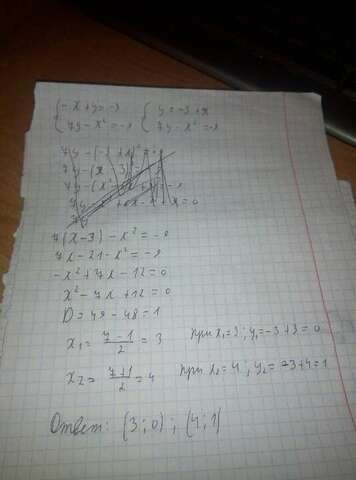 { -x+y=-3 { y=-3+x
{ 7y-x²=-9 { 7y-x²=-9
7(x-3)-x²=-9
7x-21-x²=-9
-x²+7x-12=0
x²-7x+12=0
D=49-48=1
x₁=(7-1)/2=3 при x₁=3; y₁=-3+3=0
x₂=(7+1)/2=4 при x₂=4; y₂=-3+4=1
Ответ: (3;0); (4;1)